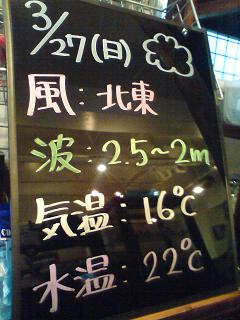 3/27(日)
風:北東
波:2.5~2m
気温:16℃
水温:22℃